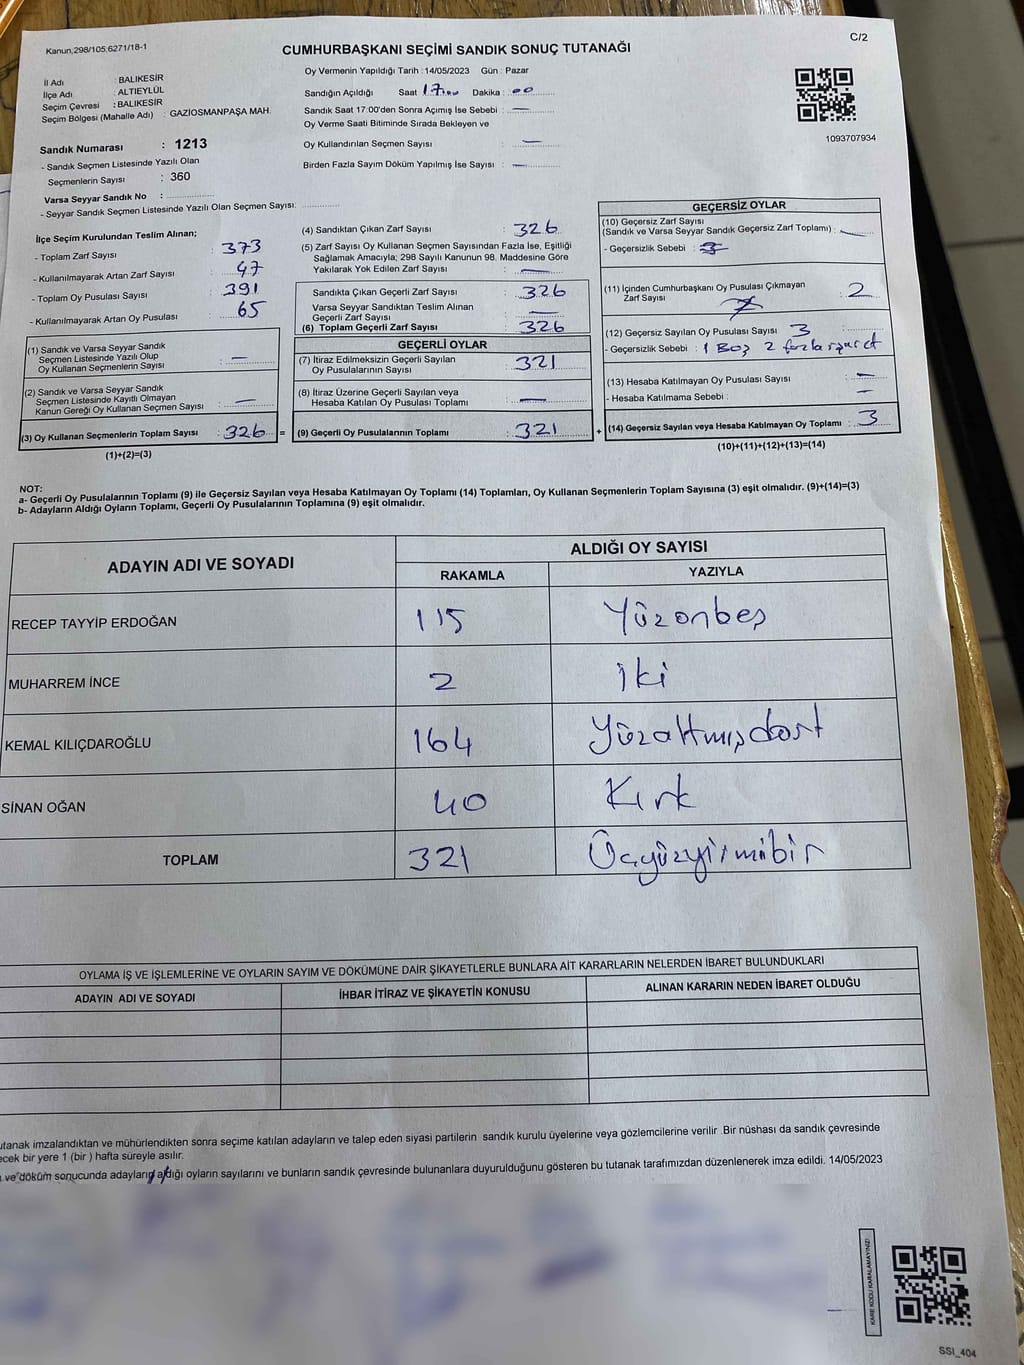 Kanun,298/105,6271/18-1
C/2
CUMHURBAŞKANI SEÇİMİ SANDIK SONUÇ TUTANAĞI
İl Adı : BALIKESİR
İlçe Adı : ALTIEYLÜL
Seçim Çevresi : BALIKESİR
Seçim Bölgesi (Mahalle Adı) : GAZİOSMANPAŞA MAH.
Sandık Numarası : 1213
- Sandık Seçmen Listesinde Yazılı Olan
Seçmenlerin Sayısı : 360
Varsa Seyyar Sandık No :
- Seyyar Sandık Seçmen Listesinde Yazılı Olan Seçmen Sayısı:
Oy Vermenin Yapıldığı Tarih : 14/05/2023 Gün : Pazar
Sandığın Açıldığı Saat 17:00 Dakika : 00
Sandık Saat 17:00'den Sonra Açımış İse Sebebi : —
Oy Verme Saati Bitiminde Sırada Bekleyen ve
Oy Kullandırılan Seçmen Sayısı : —
Birden Fazla Sayım Döküm Yapılmış İse Sayısı : —
1093707934
İlçe Seçim Kurulundan Teslim Alınan;
- Toplam Zarf Sayısı : 373
- Kullanılmayarak Artan Zarf Sayısı : 47
- Toplam Oy Pusulası Sayısı : 391
- Kullanılmayarak Artan Oy Pusulası : 65
(1) Sandık ve Varsa Seyyar Sandık
Seçmen Listesinde Yazılı Olup
Oy Kullanan Seçmenlerin Sayısı : —
(2) Sandık ve Varsa Seyyar Sandık
Seçmen Listesinde Kayıtlı Olmayan
Kanun Gereği Oy Kullanan Seçmen Sayısı : —
(3) Oy Kullanan Seçmenlerin Toplam Sayısı : 326 =
(1)+(2)=(3)
(4) Sandıktan Çıkan Zarf Sayısı : 326
(5) Zarf Sayısı Oy Kullanan Seçmen Sayısından Fazla İse, Eşitliği
Sağlamak Amacıyla; 298 Sayılı Kanunun 98. Maddesine Göre
Yakılarak Yok Edilen Zarf Sayısı : —
Sandıkta Çıkan Geçerli Zarf Sayısı : 326
Varsa Seyyar Sandıktan Teslim Alınan
Geçerli Zarf Sayısı : —
(6) Toplam Geçerli Zarf Sayısı : 326
GEÇERLİ OYLAR
(7) İtiraz Edilmeksizin Geçerli Sayılan
Oy Pusulalarının Sayısı : 321
(8) İtiraz Üzerine Geçerli Sayılan veya
Hesaba Katılan Oy Pusulası Toplamı : —
(9) Geçerli Oy Pusulalarının Toplamı : 321 +
GEÇERSİZ OYLAR
(10) Geçersiz Zarf Sayısı
(Sandık ve Varsa Seyyar Sandık Geçersiz Zarf Toplamı) : —
- Geçersizlik Sebebi :
(11) İçinden Cumhurbaşkanı Oy Pusulası Çıkmayan
Zarf Sayısı : 2
(12) Geçersiz Sayılan Oy Pusulası Sayısı : 3
- Geçersizlik Sebebi : 1 Boş 2 fazla işaret
(13) Hesaba Katılmayan Oy Pusulası Sayısı : —
- Hesaba Katılmama Sebebi : —
(14) Geçersiz Sayılan veya Hesaba Katılmayan Oy Toplamı : 3
(10)+(11)+(12)+(13)=(14)
NOT:
a- Geçerli Oy Pusulalarının Toplamı (9) ile Geçersiz Sayılan veya Hesaba Katılmayan Oy Toplamı (14) Toplamları, Oy Kullanan Seçmenlerin Toplam Sayısına (3) eşit olmalıdır. (9)+(14)=(3)
b- Adayların Aldığı Oyların Toplamı, Geçerli Oy Pusulalarının Toplamına (9) eşit olmalıdır.
ADAYIN ADI VE SOYADI
ALDIĞI OY SAYISI
RAKAMLA YAZIYLA
RECEP TAYYİP ERDOĞAN 115 Yüzonbeş
MUHARREM İNCE 2 İki
KEMAL KILIÇDAROĞLU 164 Yüzaltmışdört
SİNAN OĞAN 40 Kırk
TOPLAM 321 Üçyüzyirmibir
OYLAMA İŞ VE İŞLEMLERİNE VE OYLARIN SAYIM VE DÖKÜMÜNE DAİR ŞİKAYETLERLE BUNLARA AİT KARARLARIN NELERDEN İBARET BULUNDUKLARI
ADAYIN ADI VE SOYADI İHBAR İTİRAZ VE ŞİKAYETİN KONUSU ALINAN KARARIN NEDEN İBARET OLDUĞU
utanak imzalandıktan ve mühürlendikten sonra seçime katılan adayların ve talep eden siyasi partilerin sandık kurulu üyelerine veya gözlemcilerine verilir .Bir nüshası da sandık çevresinde
ecek bir yere 1 (bir ) hafta süreyle asılır.
ve döküm sonucunda adayların aldığı oyların sayılarını ve bunların sandık çevresinde bulunanlara duyurulduğunu gösteren bu tutanak tarafımızdan düzenlenerek imza edildi. 14/05/2023
KARE KODU KARALAMAYINIZ!
SSI_404